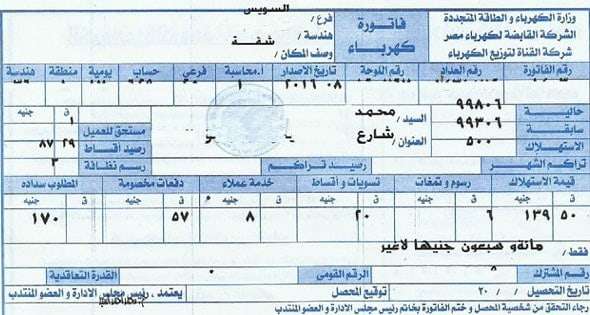 السويس
وزارة الكهرباء و الطاقة المتجددة
الشركة القابضة لكهرباء مصر
شركة القناة لتوزيع الكهرباء
فاتورة
كهرباء
فرع /
هندسة / شقة
وصف المكان /
رقم الفاتورة رقم العداد رقم اللوحة تاريخ الاصدار أ.محاسبة فرعى حساب يومية منطقة هندسة
٢٠١٦ ٠٨ ١
حالية ٩٩٨٠٦
سابقة ٩٩٣٠٦
الاستهلاك ٥٠٠
السيد/ محمد
العنوان/ شارع
ق جنيه
مستحق للعميل ١
رصيد أقساط ٢٩ ٨٧
رسم نظافة ٣
تراكم الشهر رصيد تراكم
قيمة الاستهلاك رسوم و تمغات تسويات و أقساط خدمة عملاء دفعات مخصومة المطلوب سداده
ق جنيه ق جنيه ق جنيه ق جنيه ق جنيه ق جنيه
٥٠ ١٣٩ ٦ ٢٠ ٨ ٥٧ ١٧٠
فقط / مائة و سبعون جنيها لاغير
رقم المشترك الرقم القومى القدرة التعاقدية
تاريخ التحصيل / / ٢٠ توقيع المحصل يعتمد ، رئيس مجلس الادارة و العضو المنتدب
رجاء التحقق من شخصية المحصل و ختم الفاتورة بخاتم رئيس مجلس الادارة و العضو المنتدب